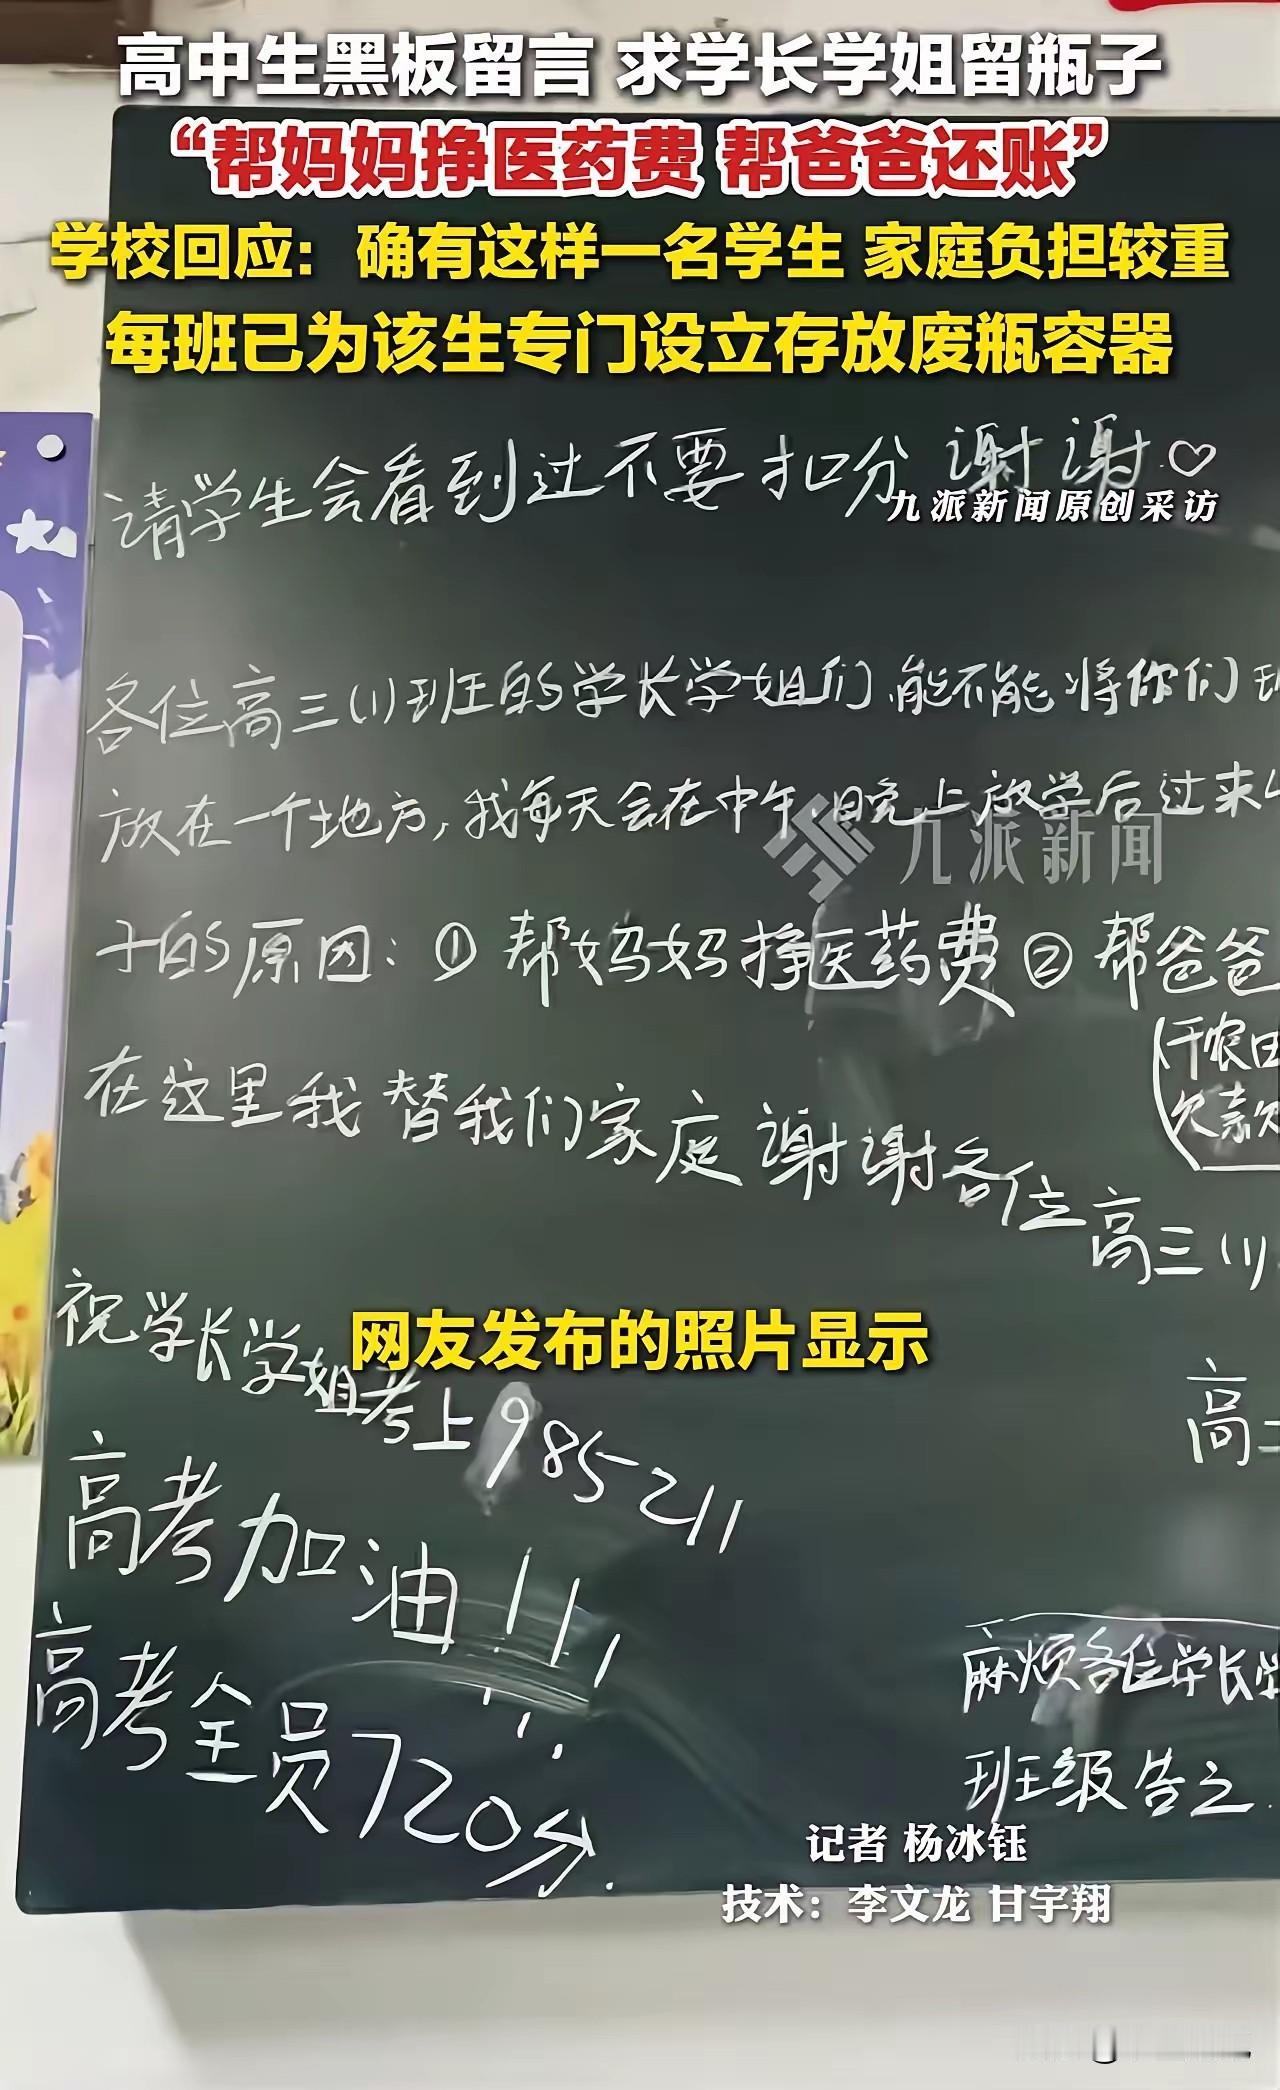 高中生黑板留言 求学长学姐留瓶子
“帮妈妈挣医药费 帮爸爸还账”
学校回应：确有这样一名学生 家庭负担较重
每班已为该生专门设立存放废瓶容器
请学生会看到过不要扣分 谢谢♡
九派新闻原创采访
各位高三(1)班的学长学姐们，能不能将你们班
放在一个地方，我每天会在中午、晚上放学后过来
九派新闻
子的原因：①帮妈妈挣医药费②帮爸爸
(干农田
欠款
在这里我替我们家庭谢谢各位高三(1)
祝学长学姐考上985 211
网友发布的照片显示
高考加油！！！
高二
高考全员720分.
麻烦各位学长学
班级告之.
记者 杨冰钰
技术：李文龙 甘宇翔